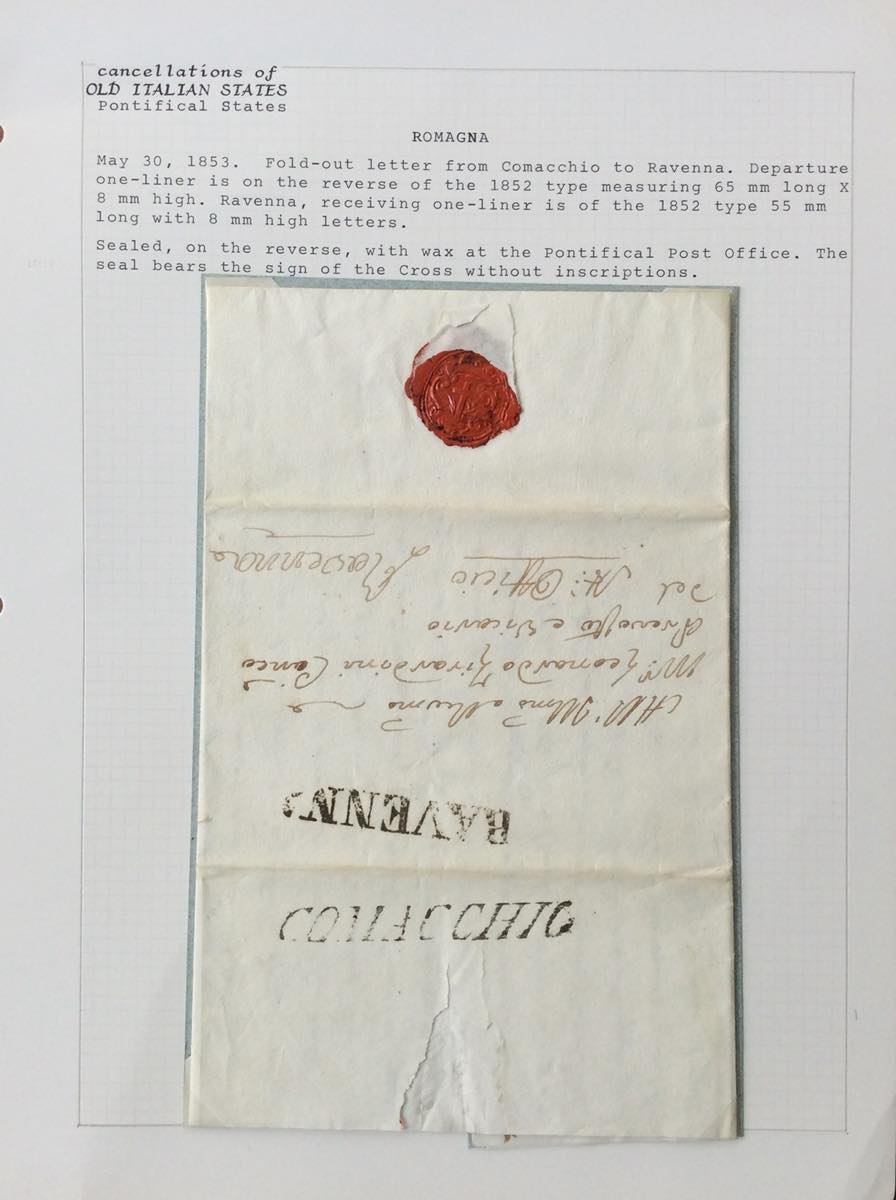 cancellations of
OLD ITALIAN STATES
Pontifical States
ROMAGNA
May 30, 1853. Fold-out letter from Comacchio to Ravenna. Departure
one-liner is on the reverse of the 1852 type measuring 65 mm long X
8 mm high. Ravenna, receiving one-liner is of the 1852 type 55 mm
long with 8 mm high letters.
Sealed, on the reverse, with wax at the Pontifical Post Office. The
seal bears the sign of the Cross without inscriptions.
RAVENNA
All'Illmo e
Leonardo Girardini
e Vicario
del St: Officio Ravenna
COMACCHIO